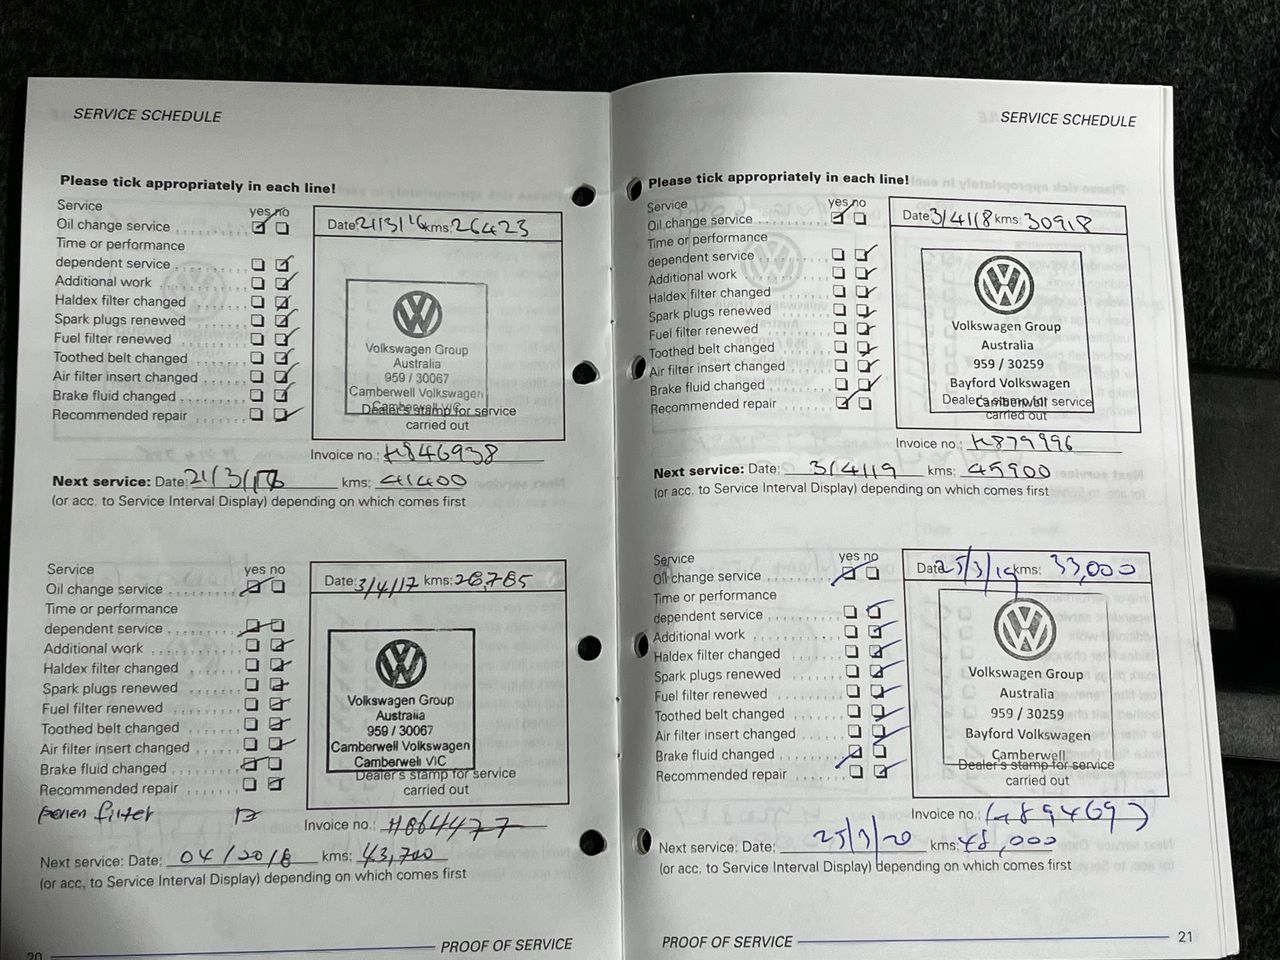 SERVICE SCHEDULE
Please tick appropriately in each line!
Service
yes no
Oil change service
Time or performance
dependent service
Additional work
Haldex filter changed
Spark plugs renewed
Fuel filter renewed
Toothed belt changed
Air filter insert changed
Brake fluid changed
Recommended repair
Date: 21/3/16 kms: 26423
Volkswagen Group
Australia
959 / 30067
Camberwell Volkswagen
Camberwell VIC
Dealer's stamp for service
carried out
Invoice no.: H846938
Next service: Date: 21/3/ kms: 41400
(or acc. to Service Interval Display) depending on which comes first
Service
yes no
Oil change service
Time or performance
dependent service
Additional work
Haldex filter changed
Spark plugs renewed
Fuel filter renewed
Toothed belt changed
Air filter insert changed
Brake fluid changed
Recommended repair
Pollen filter
Date: 3/4/17 kms: 28,785
Volkswagen Group
Australia
959 / 30067
Camberwell Volkswagen
Camberwell VIC
Dealer's stamp for service
carried out
Invoice no.: H864477
Next service: Date: 04/2018 kms: 43,700
(or acc. to Service Interval Display) depending on which comes first
PROOF OF SERVICE
20
SERVICE SCHEDULE
Please tick appropriately in each line!
Service
yes no
Oil change service
Time or performance
dependent service
Additional work
Haldex filter changed
Spark plugs renewed
Fuel filter renewed
Toothed belt changed
Air filter insert changed
Brake fluid changed
Recommended repair
Date: 3/4/18 kms: 30918
Volkswagen Group
Australia
959 / 30259
Bayford Volkswagen
Camberwell
Dealer's stamp for service
carried out
Invoice no.: H879996
Next service: Date: 3/4/19 kms: 45900
(or acc. to Service Interval Display) depending on which comes first
Service
yes no
Oil change service
Time or performance
dependent service
Additional work
Haldex filter changed
Spark plugs renewed
Fuel filter renewed
Toothed belt changed
Air filter insert changed
Brake fluid changed
Recommended repair
Date: 25/3/19 kms: 33,000
Volkswagen Group
Australia
959 / 30259
Bayford Volkswagen
Camberwell
Dealer's stamp for service
carried out
Invoice no.: H894697
Next service: Date: 25/3/20 kms: 48,000
(or acc. to Service Interval Display) depending on which comes first
PROOF OF SERVICE
21